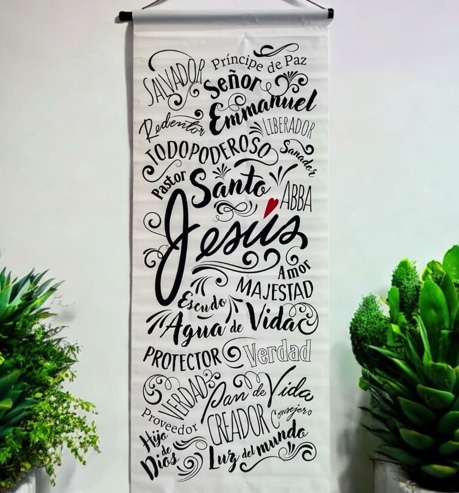 SALVADOR
Príncipe de Paz
Señor
Emmanuel
Redentor
LIBERADOR
TODOPODEROSO
Sanador
Pastor
Santo
ABBA
Jesús
Amor
Escudo
MAJESTAD
Agua de Vida
PROTECTOR
Verdad
VERDAD
Pan de Vida
Proveedor
CREADOR
Consejero
Hijo de Dios
Luz del mundo